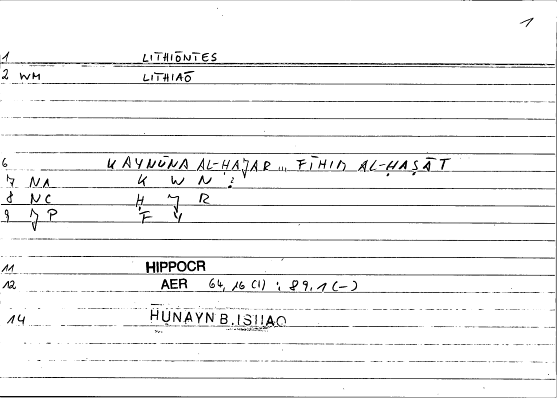 1
1 LITHIŌNTES
2 WM LITHIAŌ
6 KAYNŪNA AL-ḤAJAR ... FĪHIM AL-ḤAṢĀT
7 NA K W N
8 NC Ḥ J R
9 JP F Y
11 HIPPOCR
12 AER 64, 16 (1) ; 89, 1 (-)
14 ḤUNAYN B.